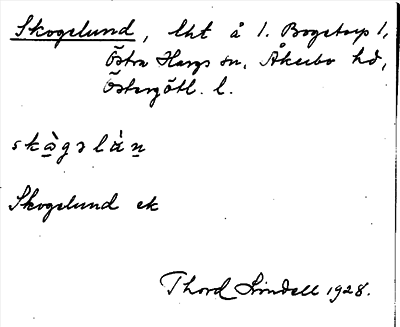 Skogslund, lht å 1. Bogstorp 1,
Östra Hargs sn, Åkerbo hd,
Östergötl. l.
skògslán
Skogslund ek
Thord Lindell 1928.